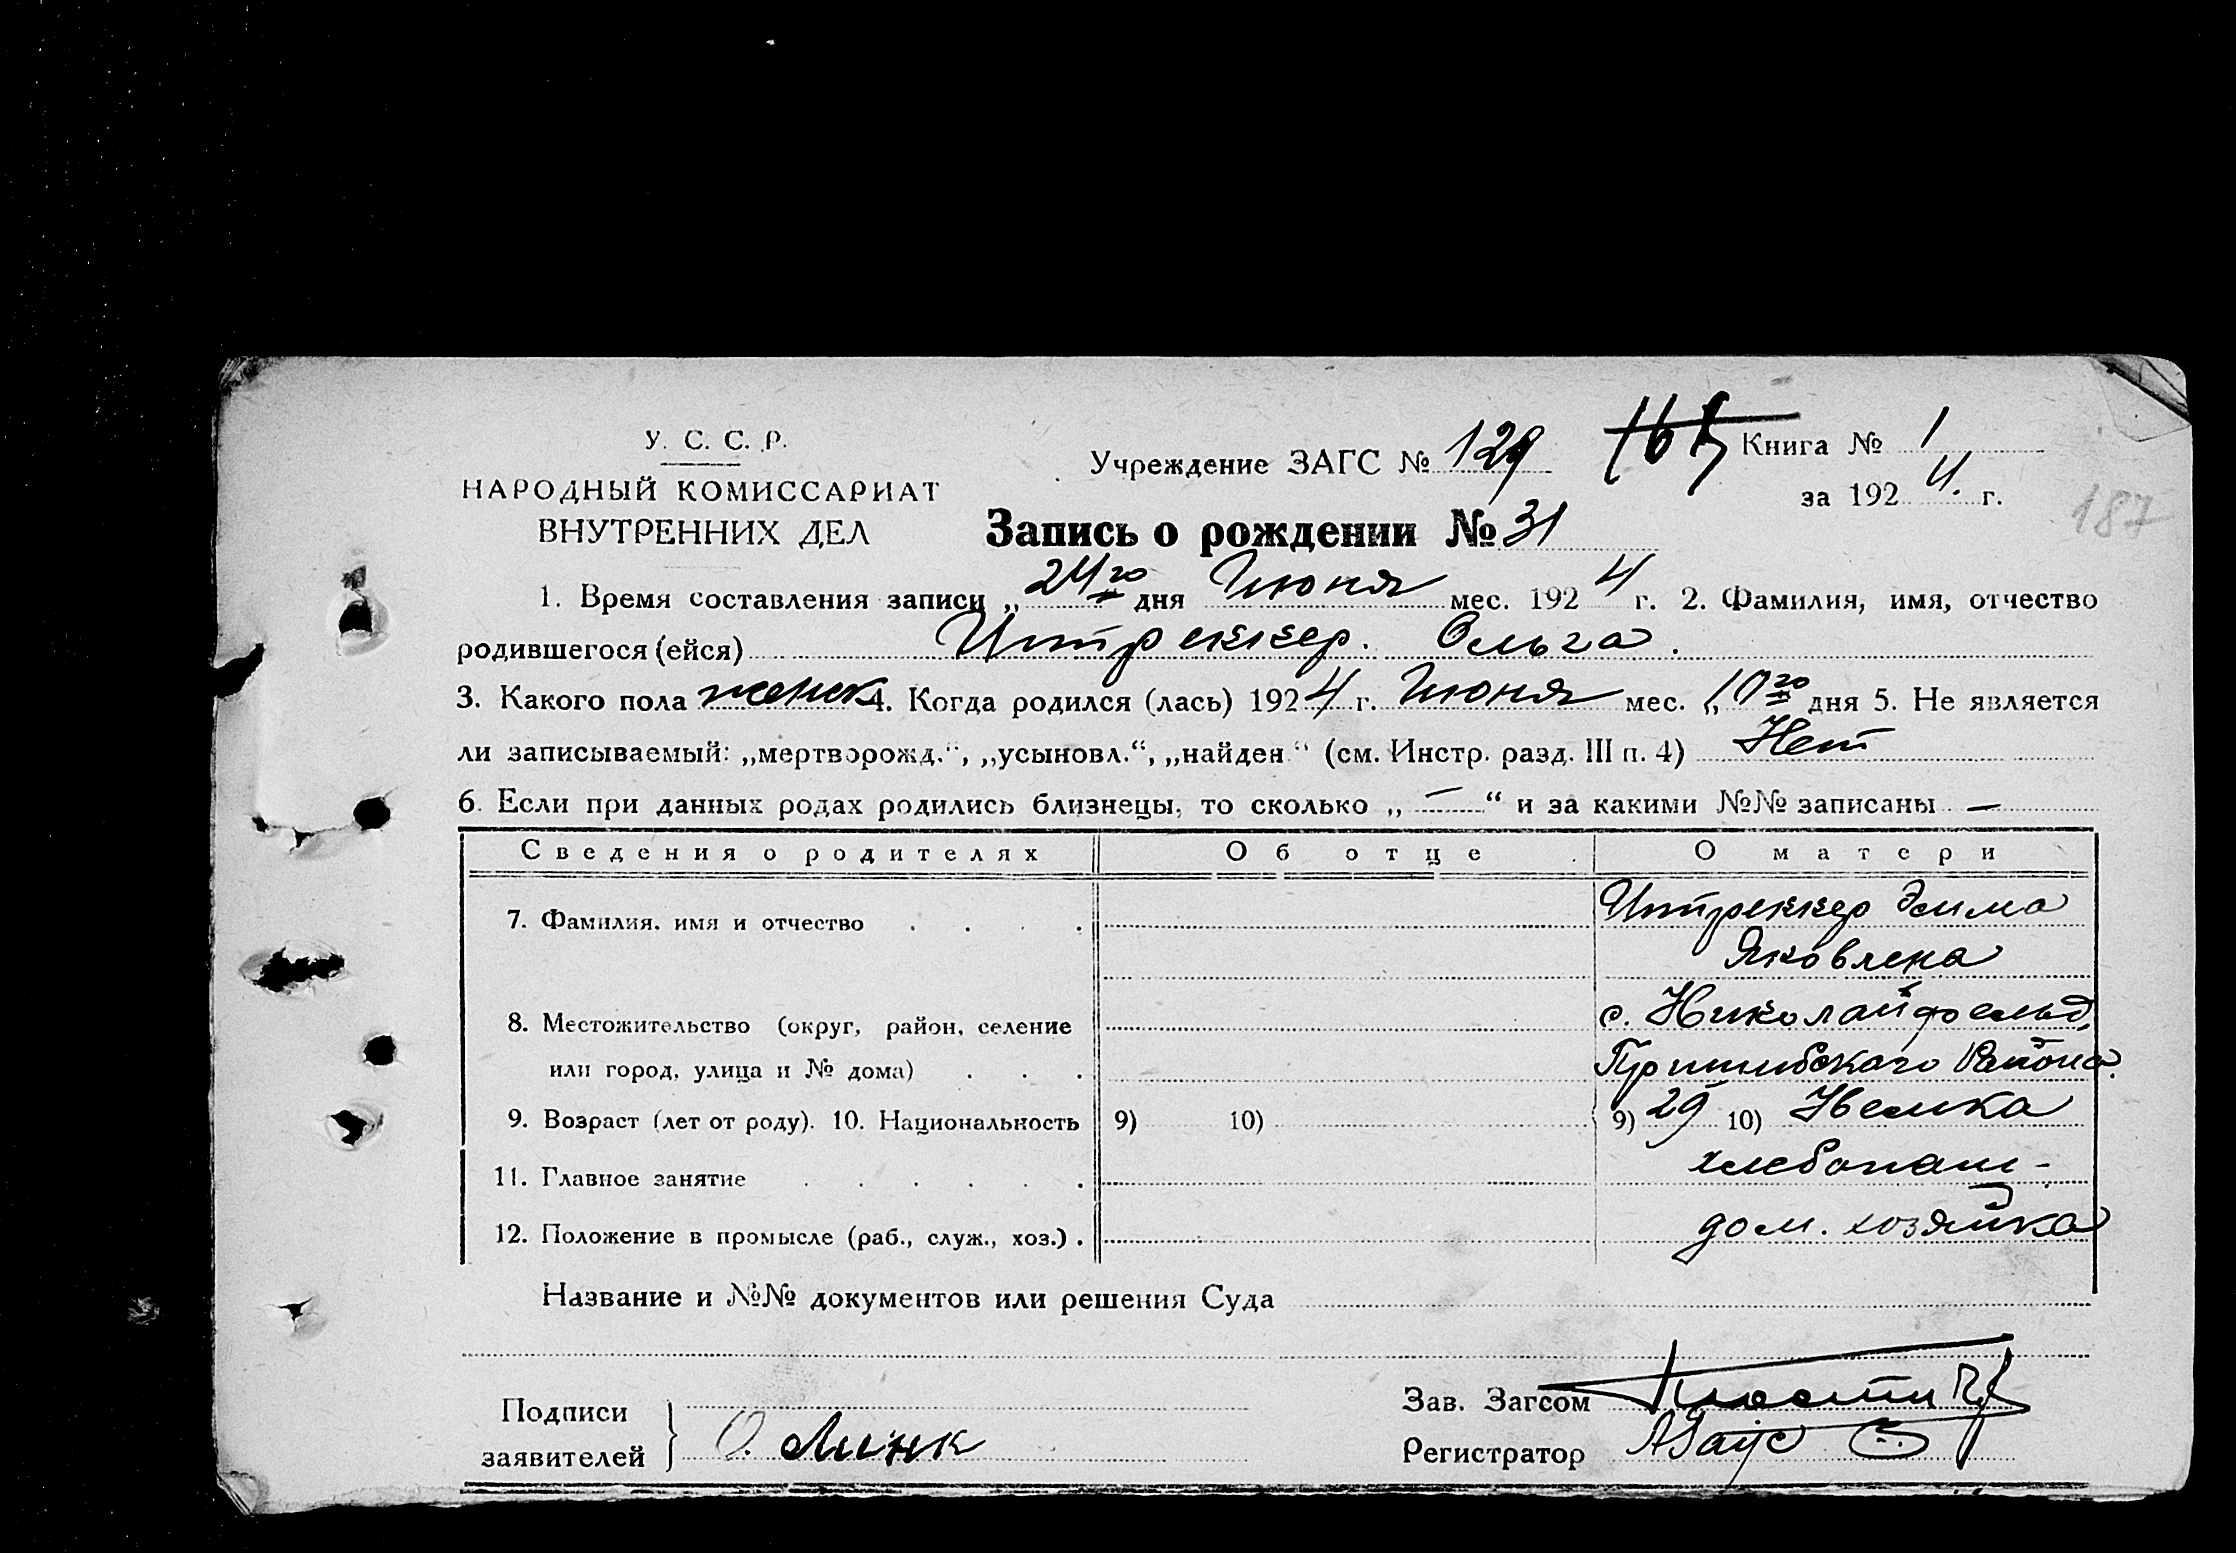 У. С. С. Р.
НАРОДНЫЙ КОМИССАРИАТ
ВНУТРЕННИХ ДЕЛ
Учреждение ЗАГС № 129
Книга № 1
за 1924. г.
187
Запись о рождении № 31
1. Время составления записи „ 24го дня Июня мес. 1924 г. 2. Фамилия, имя, отчество
родившегося (ейся) Штреккер. Ольга.
3. Какого пола женск 4. Когда родился (лась) 1924 г. Июня мес. „10го дня 5. Не является
ли записываемый: „мертворожд.“, „усыновл.“, „найден“ (см. Инстр. разд. III п. 4) Нет
6. Если при данных родах родились близнецы, то сколько „ — “ и за какими №№ записаны —
Сведения о родителях Об отце О матери
7. Фамилия, имя и отчество . . . . Штреккер Эмма
Яковлена
8. Местожительство (округ, район, селение с. Николайфельд,
или город, улица и № дома) . . . Пришибскаго Района.
9. Возраст (лет от роду). 10. Национальность 9) 10) 9) 29 10) Немка
11. Главное занятие . . . . . . хлебопаш-
12. Положение в промысле (раб., служ., хоз.) . дом. хозяйка
Название и №№ документов или решения Суда
Подписи
заявителей } О. Линк
Зав. Загсом
Регистратор